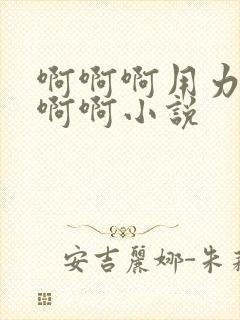 啊啊啊用力
啊啊小说
安吉麗娜-朱